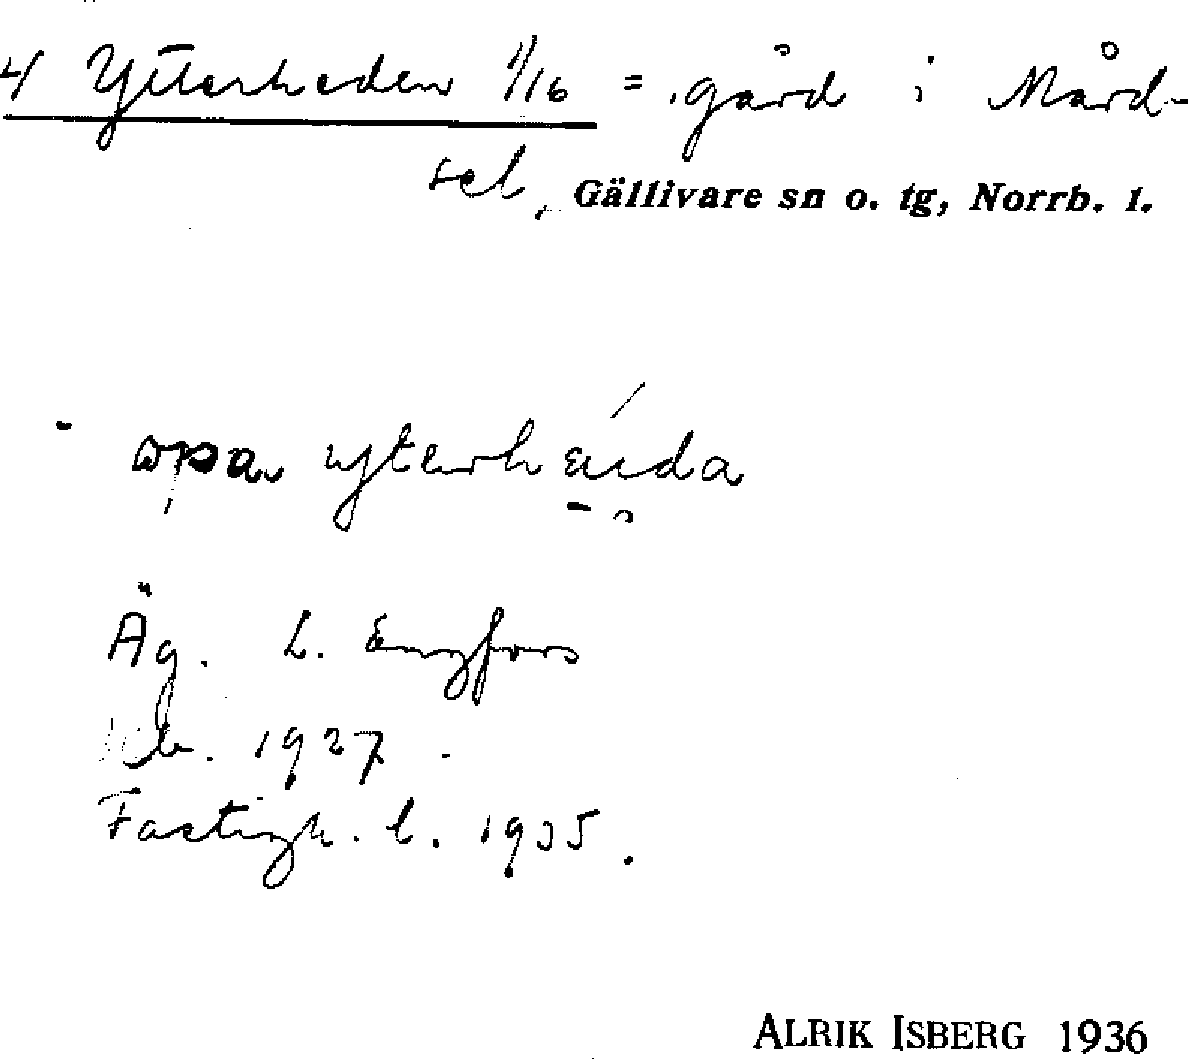 4 Ytterheden 1/16 = gård i Mård-
sel, Gällivare sn o. tg, Norrb. l.
ɷpa yterhɛida
Äg. L. Engfors
b. 1927
Fastigh. l. 1935.
ALRIK ISBERG 1936